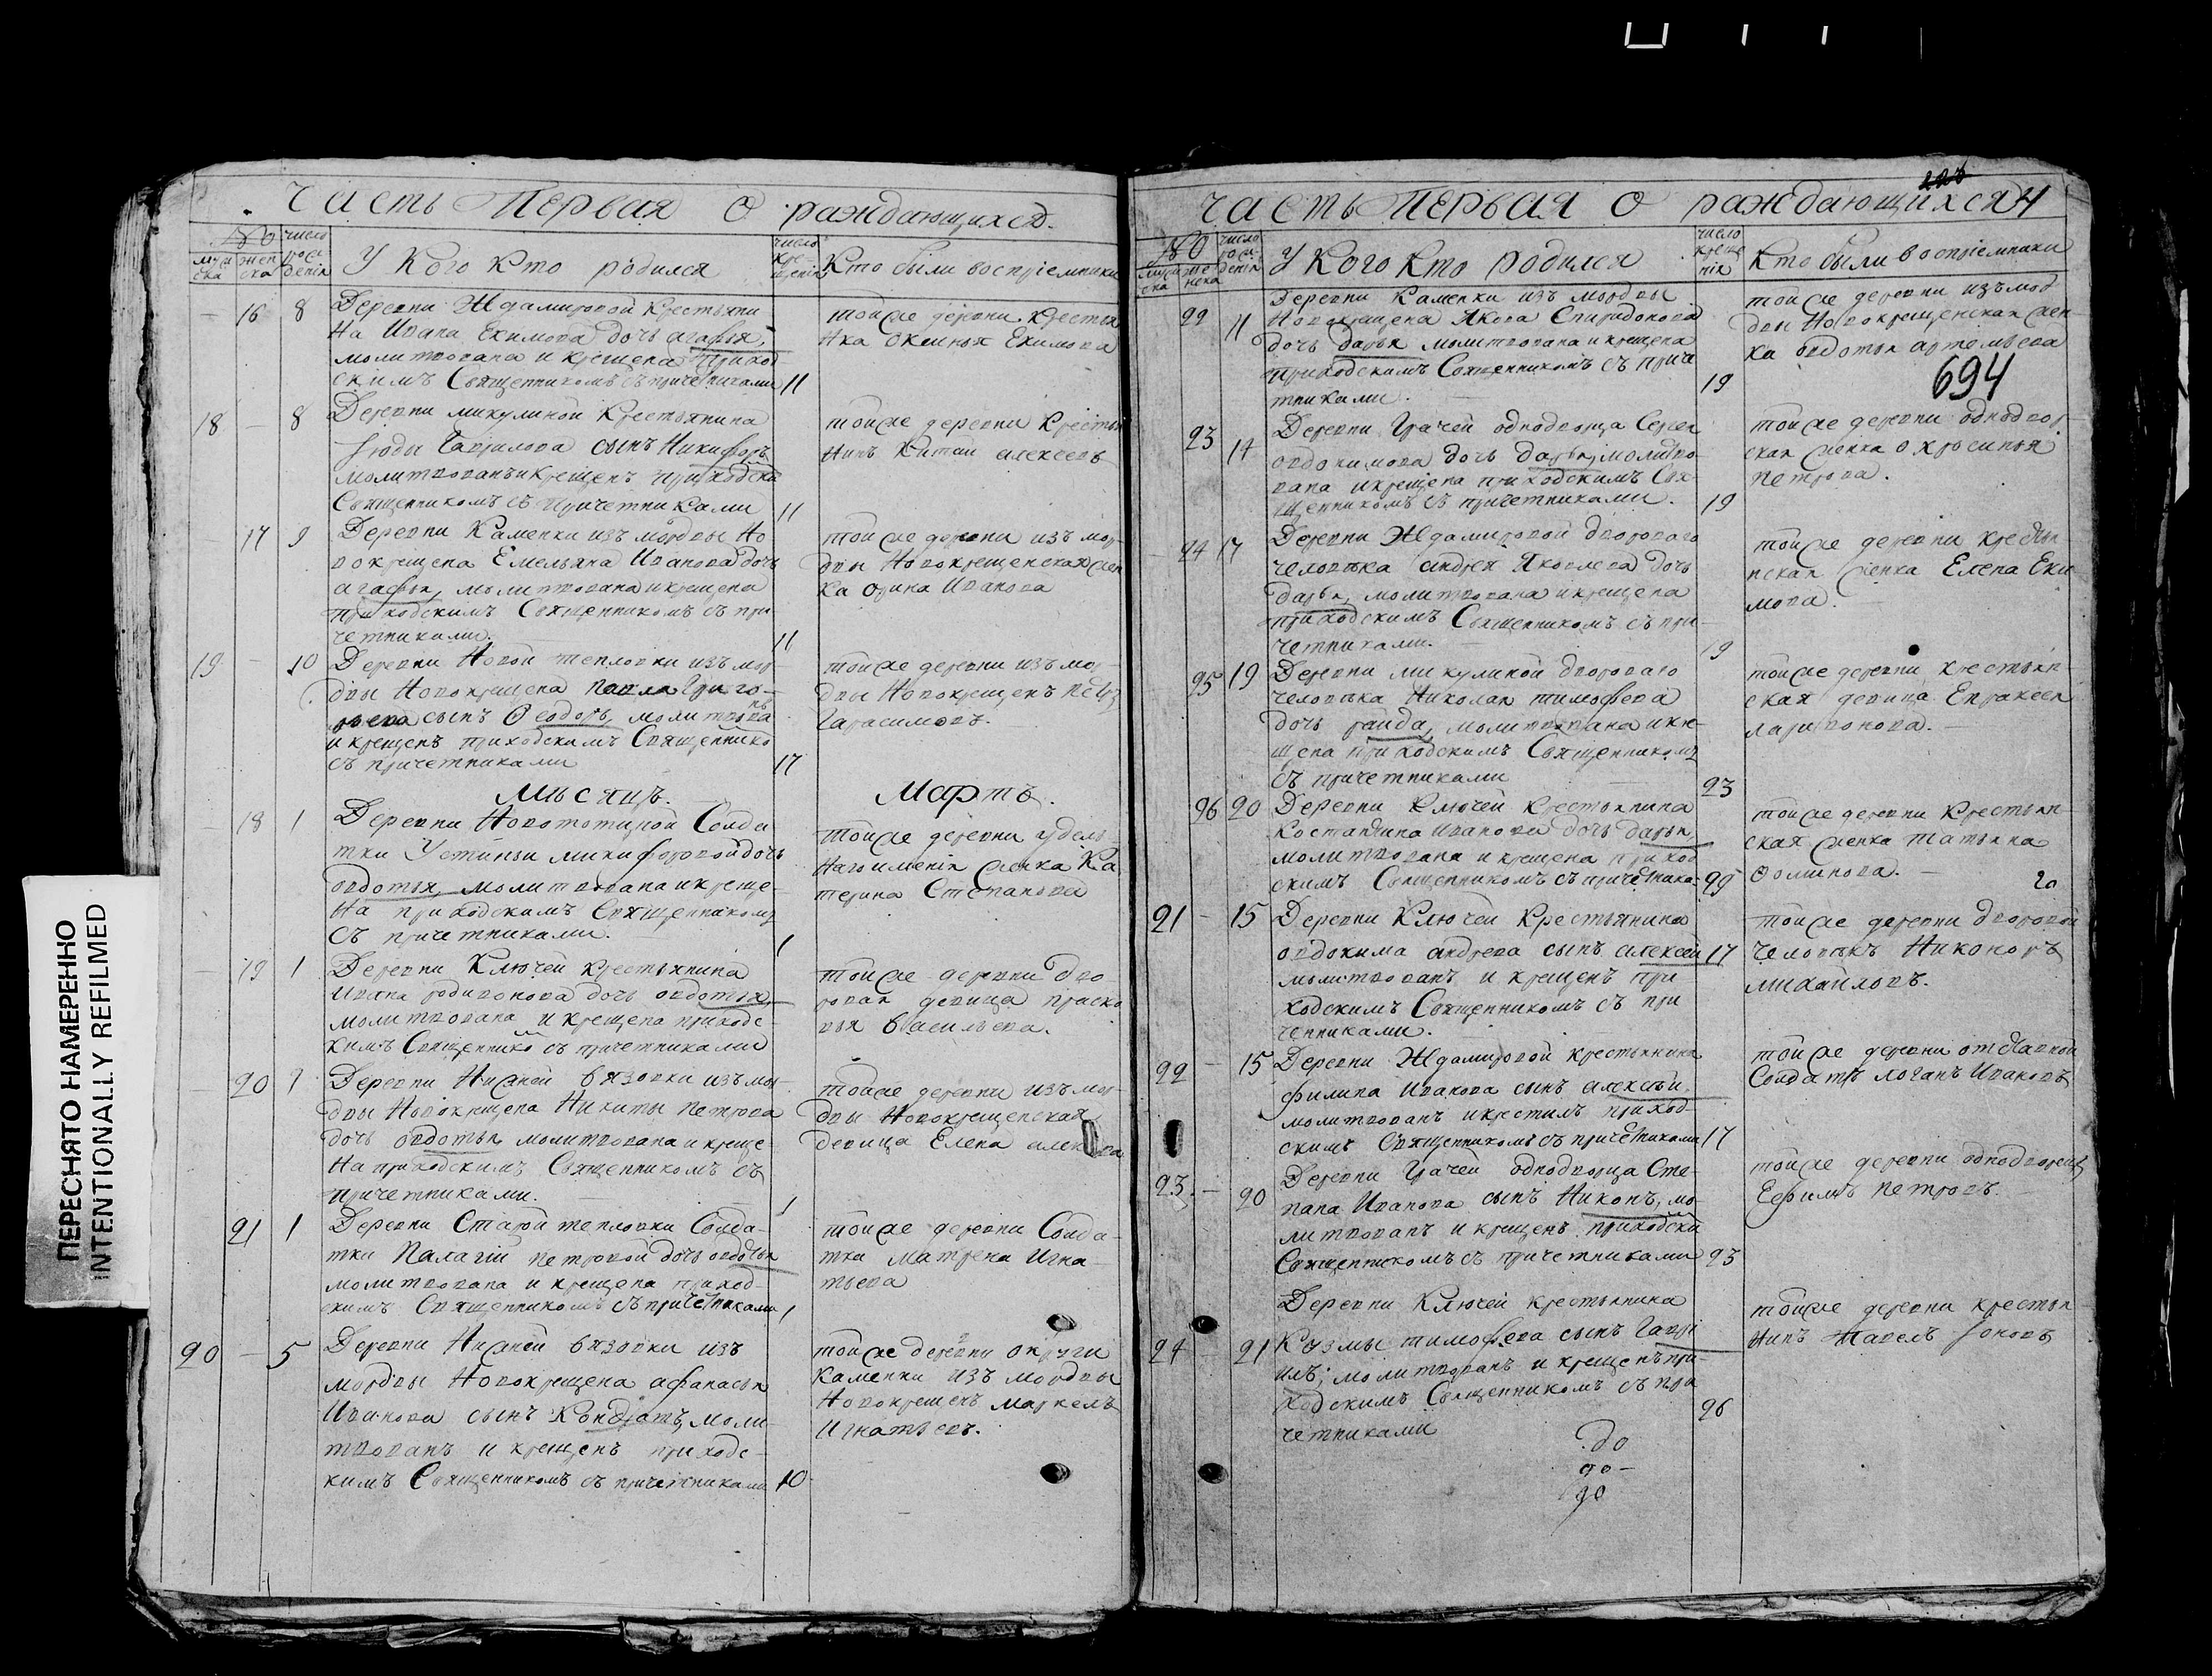 Часть Первая О раждающихся.
№
муж ска
жен ска
число рож денія
У кого кто родился
число кре щенія
Кто были воспріемники
16 8 Деревни Ждамировой крестьяни
на Ивана Екимова дочь агафья,
молитвована и крещена приход
скимъ Священникомъ съ причетниками 11
тойже деревни крестьян
нка Екимова
18 8 Деревни микулиной крестьянина
Гаврилова сынъ Никифоръ
молитвованъ и крещенъ приходски
Священникомъ съ причетниками 11
тойже деревни крестьян
нинъ алексеевъ
17 9 Деревни Каменки изъ мордвы Но
вокрещена Емельяна Иванова дочь
агафья, молитвована и крещена
приходскимъ Священникомъ съ при
четниками. 11
тойже деревни изъ мор
двы Новокрещенская жен
ка Орина Иванова
19 10 Деревни Новой тепловки изъ мор
двы Новокрещена Павла Григо
рьева сынъ Ѳеодоръ, молитвова
и крещенъ приходскимъ Священнико
съ причетниками 17
тойже деревни изъ мор
двы Новокрещенъ Петръ
Гарасимовъ.
Мѣсяцъ. Мартъ.
18 1 Деревни Солда
тки Устиньи микифоровой дочь
овдотья, молитвована и креще
на приходскимъ Священникомъ
съ причетниками. 1
тойже деревни удель
наго именія женка Ка
терина Степанова
19 1 Деревни Ключей крестьянина
Ивана родивонова дочь овдотья,
молитвована и крещена приходс
кимъ Священнико съ причетниками
тойже деревни дво
ровая девица праско
вья васильева.
20 1 Деревни Нижней вязовки изъ мор
двы Новокрещена Никиты петрова
дочь овдотья молитвована и креще
на приходскимъ Священникомъ съ
причетниками. 1
тойже деревни изъ мор
двы Новокрещенская
девица Елена
21 1 Деревни Старой тепловки Солда
тки Палагіи петровой дочь овдотья
молитвована и крещена приход
скимъ Священникомъ съ причетниками 1
тойже деревни Солда
тка Матрена Игна
тьева
20 5 Деревни Нижней вязовки изъ
мордвы Новокрещена афанасья
Иванова сынъ Кондратъ, моли
твованъ и крещенъ приходс
кимъ Священникомъ съ причетниками 10
тойже деревни округи
Каменки изъ мордвы
Новокрещенъ маркелъ
Игнатьевъ.
Часть Первая О раждающихся 4
694
№
муж ска
же нска
число рож денія
У кого кто родился
число креще нія
Кто были воспріемники
22 11 Деревни Каменки изъ мордвы
Новокрещена Якова Спиридонова
дочь дарья молитвована и крещена
приходскимъ Священникомъ съ приче
тниками. 19
тойже деревни изъ мор
двы Новокрещенская жен
ка овдотья артемьева
23 17 Деревни Грачей однодворца Сергея
овдокимова дочь дарья, молитво
вана и крещена приходскимъ Свя
щенникомъ съ причетниками. 19
тойже деревни однодвор
ская женка офросинья
петрова.
24 17 Деревни Ждамировой двороваго
человѣка андрея Яковлева дочь
дарья, молитвована и крещена
приходскимъ Священникомъ съ при
четниками. 19
тойже деревни крестья
нская женка Елена Еки
мова.
25 19 Деревни микулиной двороваго
человѣка Николая тимофѣева
дочь раида, молитвована и кре
щена приходскимъ Священникомъ
съ причетниками 23
тойже деревни крестьян
ская девица Евраксея
ларивонова.
26 20 Деревни Ключей крестьянина
Костантина Иванова дочь дарья,
молитвована и крещена приход
скимъ Священникомъ съ причетника 25
тойже деревни крестьян
ская женка татьяна
Ѳоминова.
20
21 15 Деревни Ключей крестьянина
овдокима андреева сынъ алексей 17
молитвованъ и крещенъ при
ходскимъ Священникомъ съ при
четниками.
тойже деревни дворовой
человѣкъ Никоноръ
михайловъ.
22 15 Деревни Ждамировой крестьянина
филипа Иванова сынъ алексѣй
молитвованъ и крестилъ приход
скимъ Священникомъ съ причетниками 17
тойже деревни отставной
Солдатъ логанъ Ивановъ
23. 20 Деревни Грачей однодворца Сте
пана Иванова сынъ Никонъ, мо
литвованъ и крещенъ приходски
Священникомъ съ причетниками 23
тойже деревни однодворецъ
Ефимъ петровъ.
24 21 Деревни Ключей крестьянина
Кузмы тимофѣева сынъ Гаврі
илъ; молитвованъ и крещенъ при
ходскимъ Священникомъ съ при
четниками 26
тойже деревни крестьян
нинъ Павелъ
до
ПЕРЕСНЯТО НАМЕРЕННО
INTENTIONALLY REFILMED